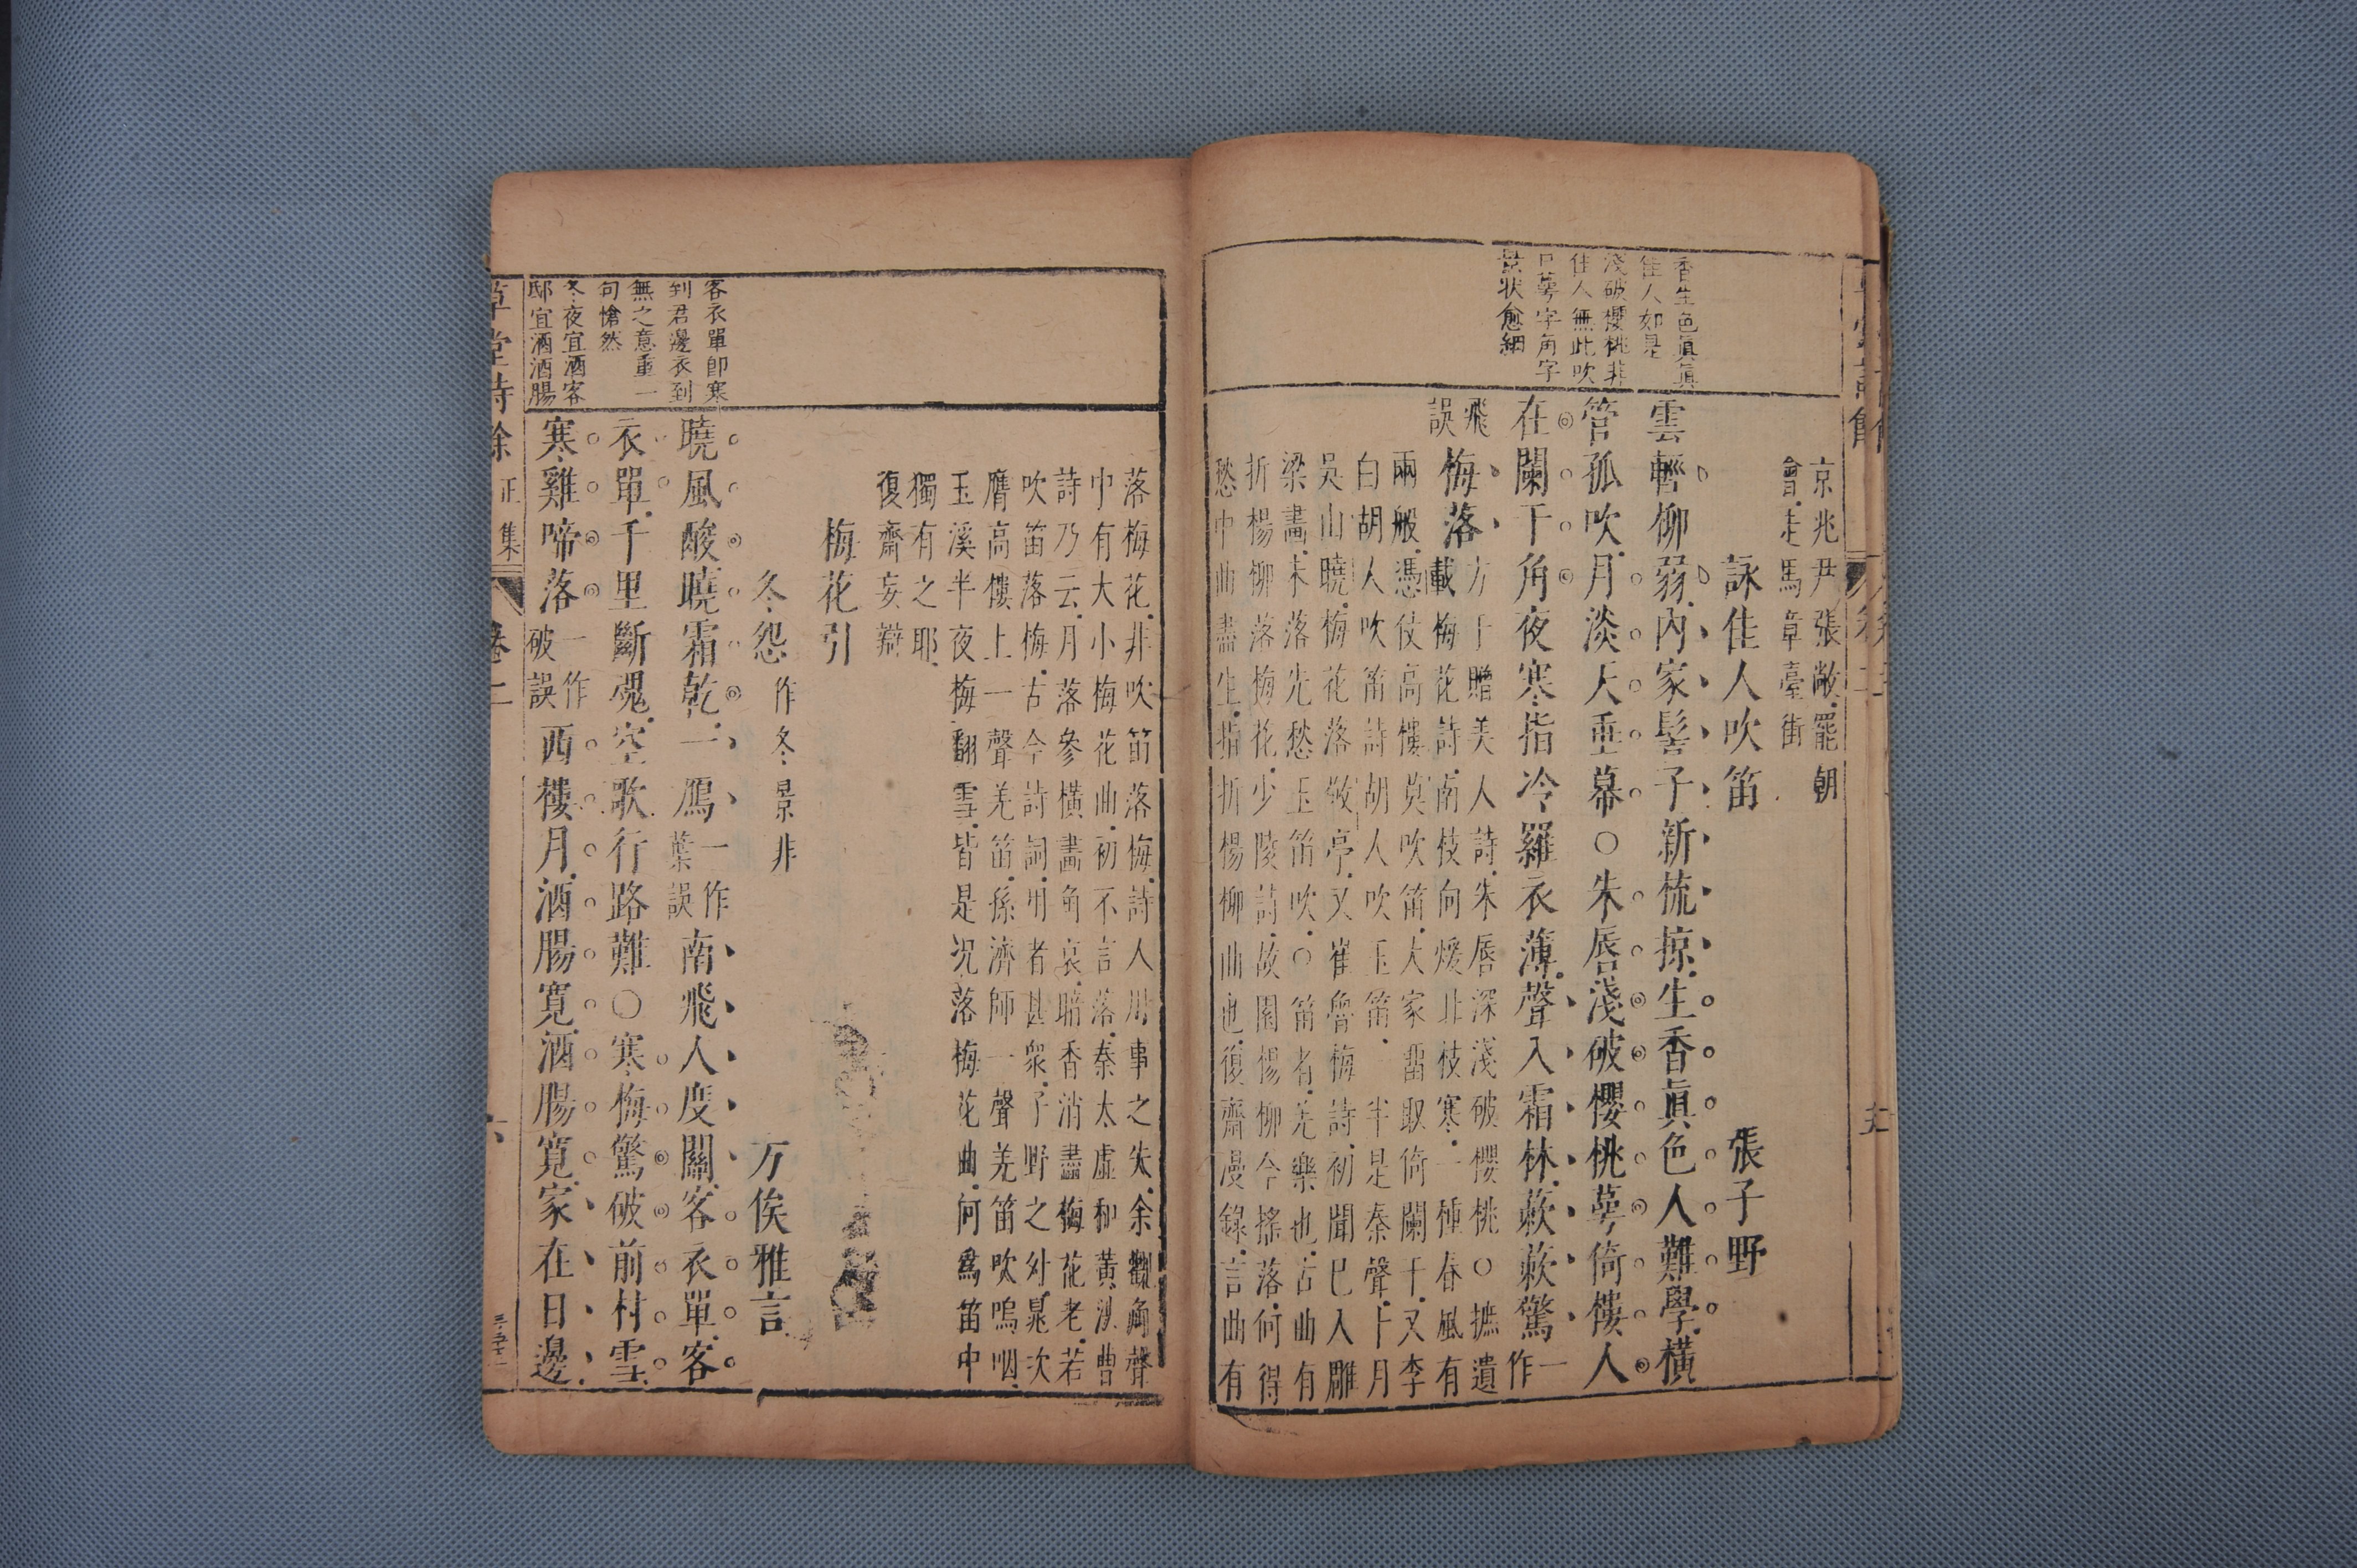 京兆尹張敞罷朝
會走馬章臺街
詠佳人吹笛 張子野
雲輕柳弱內家髻子新梳掠生香眞色人難學橫
管孤吹月淡天垂幕○朱唇淺破櫻桃萼倚樓人
在闌干角夜寒指冷羅衣薄聲入霜林蔌蔌驚一作
飛誤梅落
方干贈美人詩朱唇深淺破櫻桃○摭遺
載梅花詩南枝向煖北枝寒一種春風有
兩般憑仗高樓莫吹笛大家畱取倚闌干又李
白胡人吹笛詩胡人吹玉笛一半是秦聲十月
吳山曉梅花落敬亭又崔魯梅詩初聞已入雕
梁畵未落先愁玉笛吹○笛者羌樂也古曲有
折楊柳落梅花少陵詩故園楊柳今搖落何得
愁中曲盡生指折楊柳曲也復齋漫錄言曲有
香生色眞眞
佳人如是
淺破櫻桃非
佳人無此吹
口萼字角字
景狀愈細
落梅花非吹笛落梅詩人用事之失余觀角聲
中有大小梅花曲初不言落秦太虛和黃法曹
詩乃云月落參橫畵角哀暗香消盡梅花老若
吹笛落梅古今詩詞用者甚衆子野之外晁次
膺高樓上一聲羌笛孫濟師一聲羌笛吹嗚咽
玉溪半夜梅翻雪皆是况落梅花曲何爲笛中
獨有之耶
復齋妄辯
梅花引
冬怨作冬景非 万俟雅言
曉風酸曉霜乾一鴈一作葉誤南飛人度關客衣單客
衣單千里斷魂空歌行路難○寒梅驚破前村雪
寒雞啼落一作破誤西樓月酒腸寬酒腸寬家在日邊
客衣單卽寒
到君邊衣到
無之意重一
句愴然
冬夜宜酒客
邸宜酒酒腸
草堂詩餘 正集 卷二